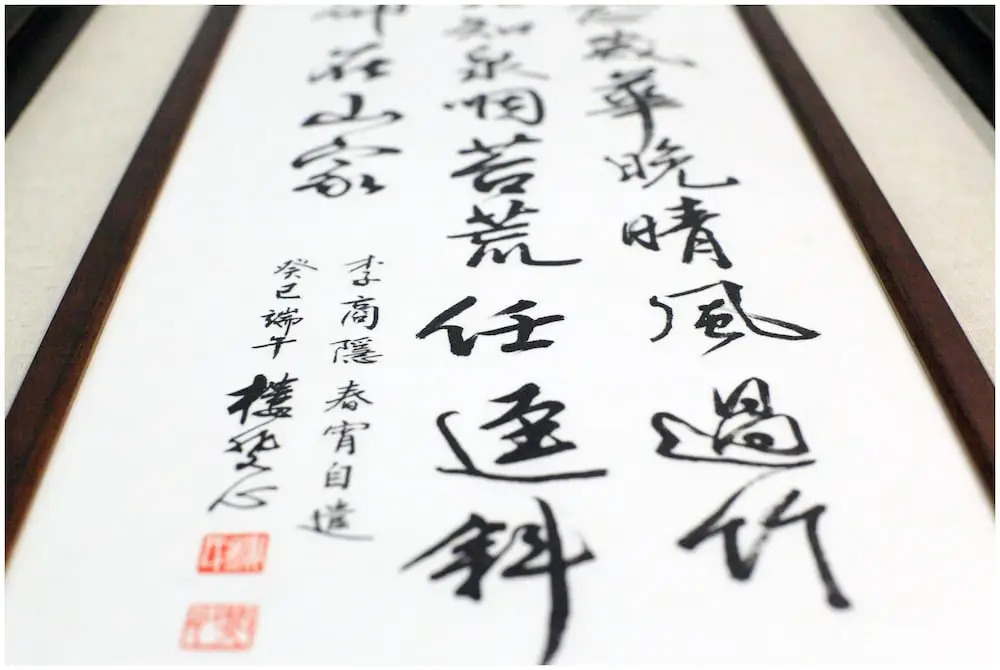 歲華晚晴風過竹
知泉咽苔荒任逕斜
卻在山家
李商隱春宵自遣
癸巳端午 樓 心